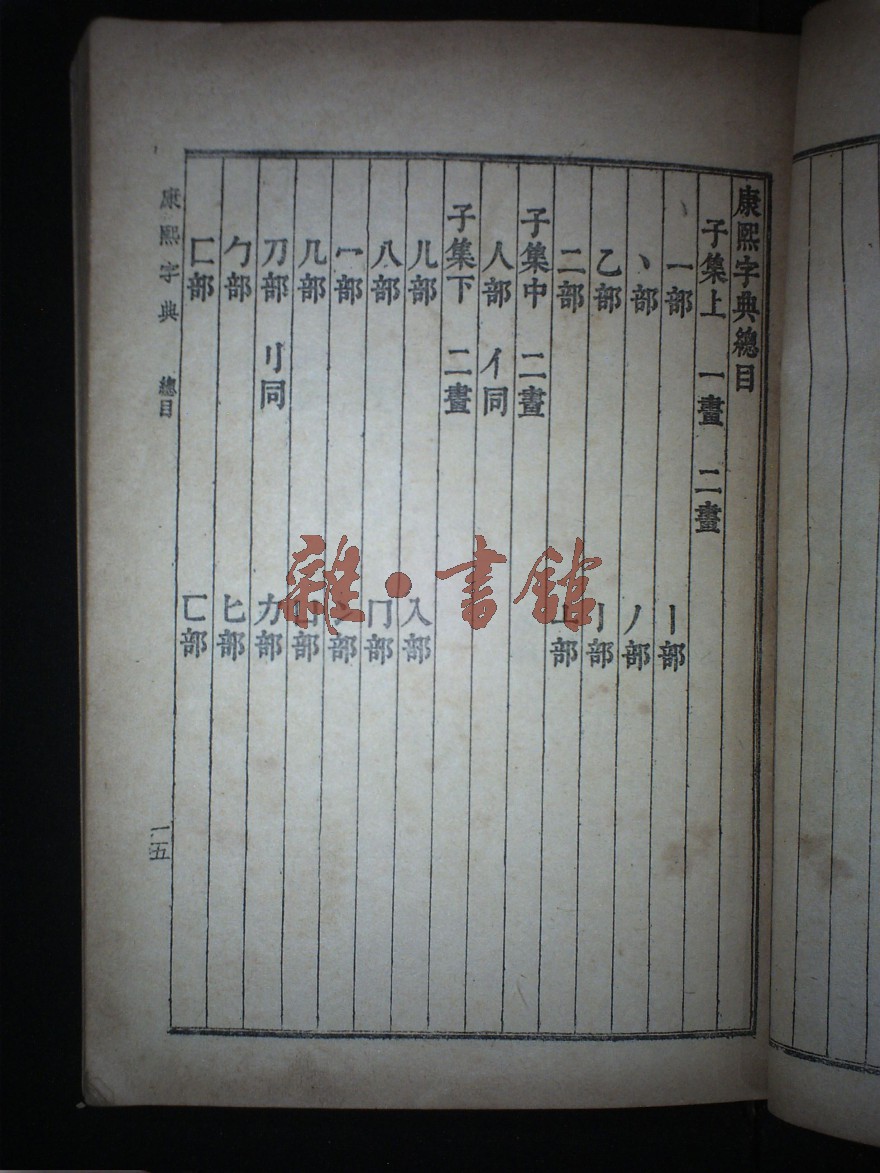 康熙字典總目
子集上 一畫 二畫
一部 丨部
丶部 丿部
乙部 亅部
二部 亠部
子集中 二畫
人部 亻同
子集下 二畫
儿部 入部
八部 冂部
冖部 冫部
几部 凵部
刀部 刂同 力部
勹部 匕部
匚部 匸部
康熙字典 總目
一五
雜·書館